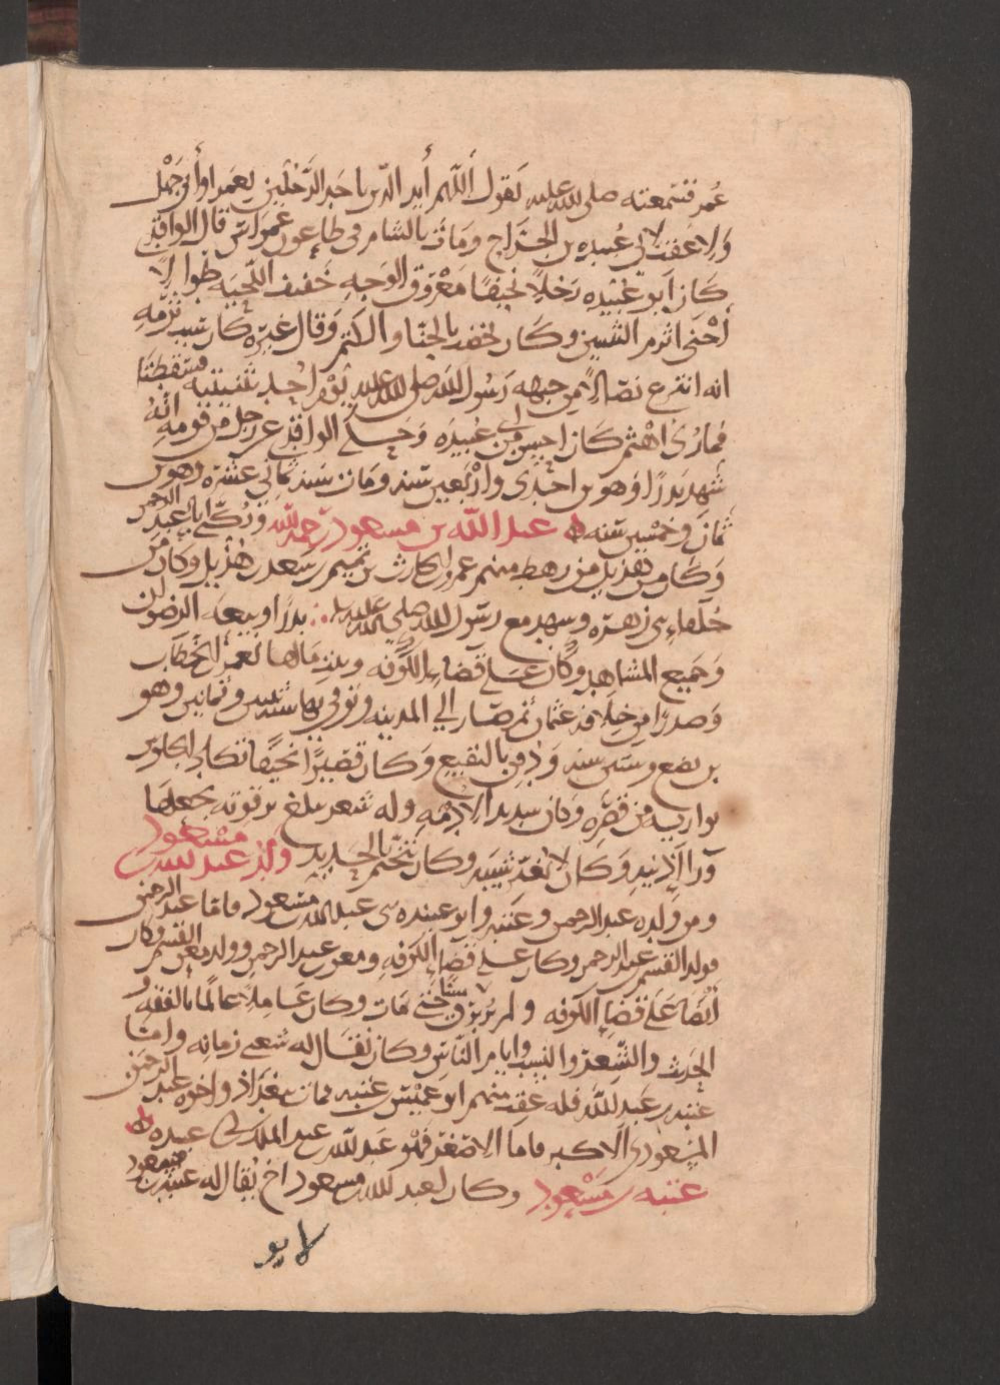 عُمر فسمعته صلى الله عليه يقول اللّهم أيد الدّين باحد الرَّجُلين بعمر او أبي جَهْل
وَلا عقب لابي عُبيده بن الجرّاج ومَات بالشام في طاعون عمواس قال الواقدي
كان أبو عبَيده رَجُلاً نحيفًا مَعْرُوق الوَجه خفيف اللّحيَه طوالاً
أحْنى اثرم الثنيتين وكَان يخضب بالحنّا والكتم وَقال غيره كان سبب ثرمه
انه انتزع نصالا من جبهه رَسُول الله صلى الله عليه يَوْم احُد بثنيتيه فسَقطتا
فما رُئى اهْتم كان احسن من ابي عُبيدَه وَحكى الواقدي عن رجل من قومه انّهُ
شهد بَدرًا وَهو بن احْدى وارْبعين سَنه ومَات سَنه ثمانيْ عَشره وهو بن
ثمان وخمْسين سَنه عبد الله بن مسعود رَحمه الله ويُكنّى ابا عبد الرحمن
وَكان من هذيل من رهط منهم عمرو بن الحارث بن تميم بن سَعد بن هذيل وكان من
حُلفاء بني زهرَه وشهد مع رسول الله صلى الله عليه بدرًا وبيعه الرضوان
وَجميع المشاهد وكان عَلى قضاء الكوفه وبيت مَالها لعمر بن الخطاب
وَصدرًا من خلافه عثمان ثم صَار الي المدينه وتوفي بها سنه اثنتين وثلثين وهو
بن بضع وستين سنه وَدُفن بالبقيع وَكان قصيرًا نحيفًا تكاد الجلوس
تواريه من قصَره وكان شديد الاُدمَه وله شعر يبلغ ترقوته يجعله
ورا أذنيه وَكان لا يُغيّر شيبه وكان يتختّم بالحديد ولد عبد الله بن مسْعُود
ومن وَلده عبد الرحمن وعُتبه وابو عبيده بني عبد الله بن مسعود فاما عبد الرحمن
فولد القسم بن عبد الرحمن وكان على قضاء الكوفه ومعن بن عبد الرحمن وولد معن القسم وكان
أيْضًا عَلَى قضَا الكوفه ولم يَرتزق شيئًا حتى مَات وكان عَاملاً عالمًا بالفقه و
الحديث والشّعر والنسب وايام النّاس وكان يقَال له شعبي زمانه وامّا
عُتبه بن عبد الله فله عَقب منهم ابو عميْس عتبه مات ببغداذ واخوه عبد الرحمن
المسْعودي الاكبر فاما الاصغر فهو عَبد الله بن عبد الملك بن ابي عبيده
عتبه بن مسْعُود وكان لعبد الله بن مسعود اخ يُقال له عتبه بن مسعود